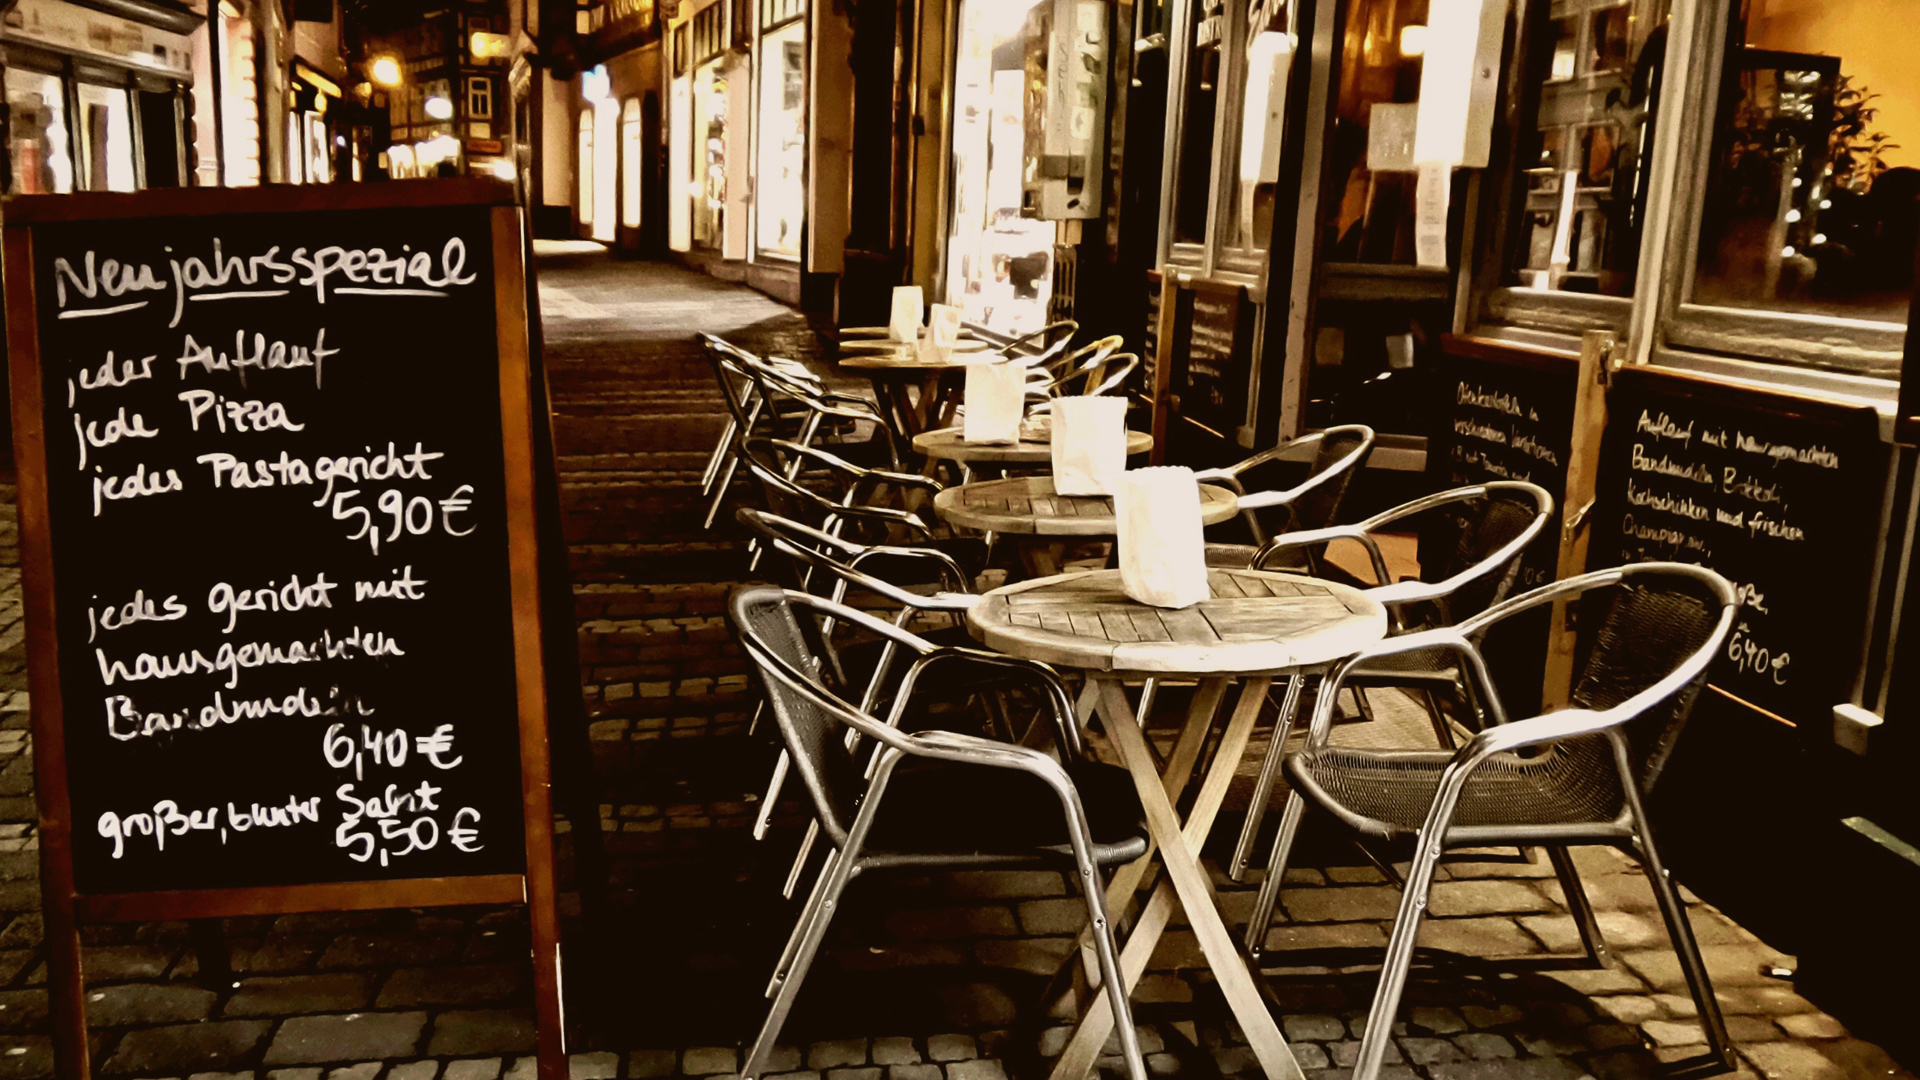 Neujahrsspezial
jeder Auflauf
jede Pizza
jedes Pastagericht
5,90 €
jedes Gericht mit
hausgemachten
Bandnudeln
6,40 €
großer, bunter Salat
5,50 €
Ofenkartoffeln in
verschiedenen
Auflauf mit hausgemachten
Bandnudeln, Brokkoli,
Kochschinken und frischen
Champignons,
6,40 €